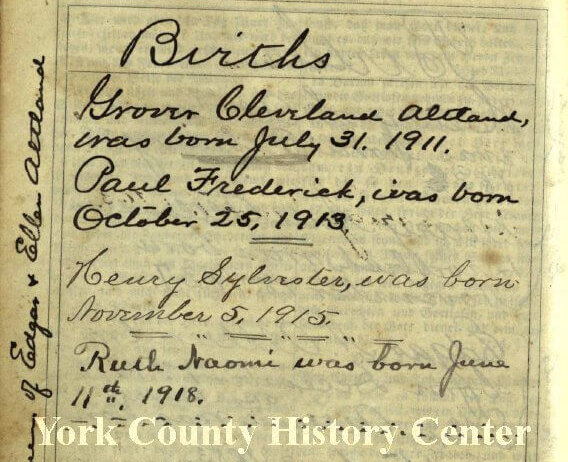 Births
Grover Cleveland Altland,
was born July 31. 1911.
Paul Frederick, was born
October 25, 1913.
Henry Sylvester, was born
November 5, 1915.
Ruth Naomi was born June
11th, 1918.
of Edgar & Ellen Altland
York County History Center